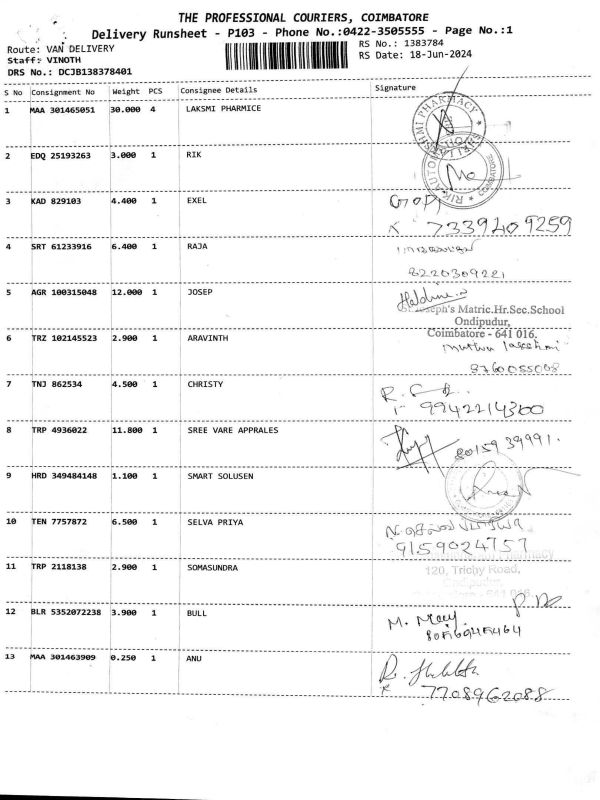 THE PROFESSIONAL COURIERS, COIMBATORE
Delivery Runsheet - P103 - Phone No.:0422-3505555 - Page No.:1
Route: VAN DELIVERY
RS No.: 1383784
Staff: VINOTH
RS Date: 18-Jun-2024
DRS No.: DCJB138378401
S No Consignment No Weight PCS Consignee Details Signature
1 MAA 301465051 30.000 4 LAKSMI PHARMICE
2 EDQ 25193263 3.000 1 RIK
3 KAD 829103 4.400 1 EXEL Gopi
7339409259
4 SRT 61233916 6.400 1 RAJA
8220309221
5 AGR 100315048 12.000 1 JOSEP
Joseph's Matric.Hr.Sec.School
Ondipudur,
Coimbatore - 641 016.
6 TRZ 102145523 2.900 1 ARAVINTH
8760055008
7 TNJ 862534 4.500 1 CHRISTY
9942214300
8 TRP 4936022 11.800 1 SREE VARE APPRALES
8015939991.
9 HRD 349484148 1.100 1 SMART SOLUSEN
10 TEN 7757872 6.500 1 SELVA PRIYA
9159024757
11 TRP 2118138 2.900 1 SOMASUNDRA
120, Trichy Road,
Ondipudur,
12 BLR 5352072238 3.900 1 BULL M. Mary
13 MAA 301463909 0.250 1 ANU
7708962088